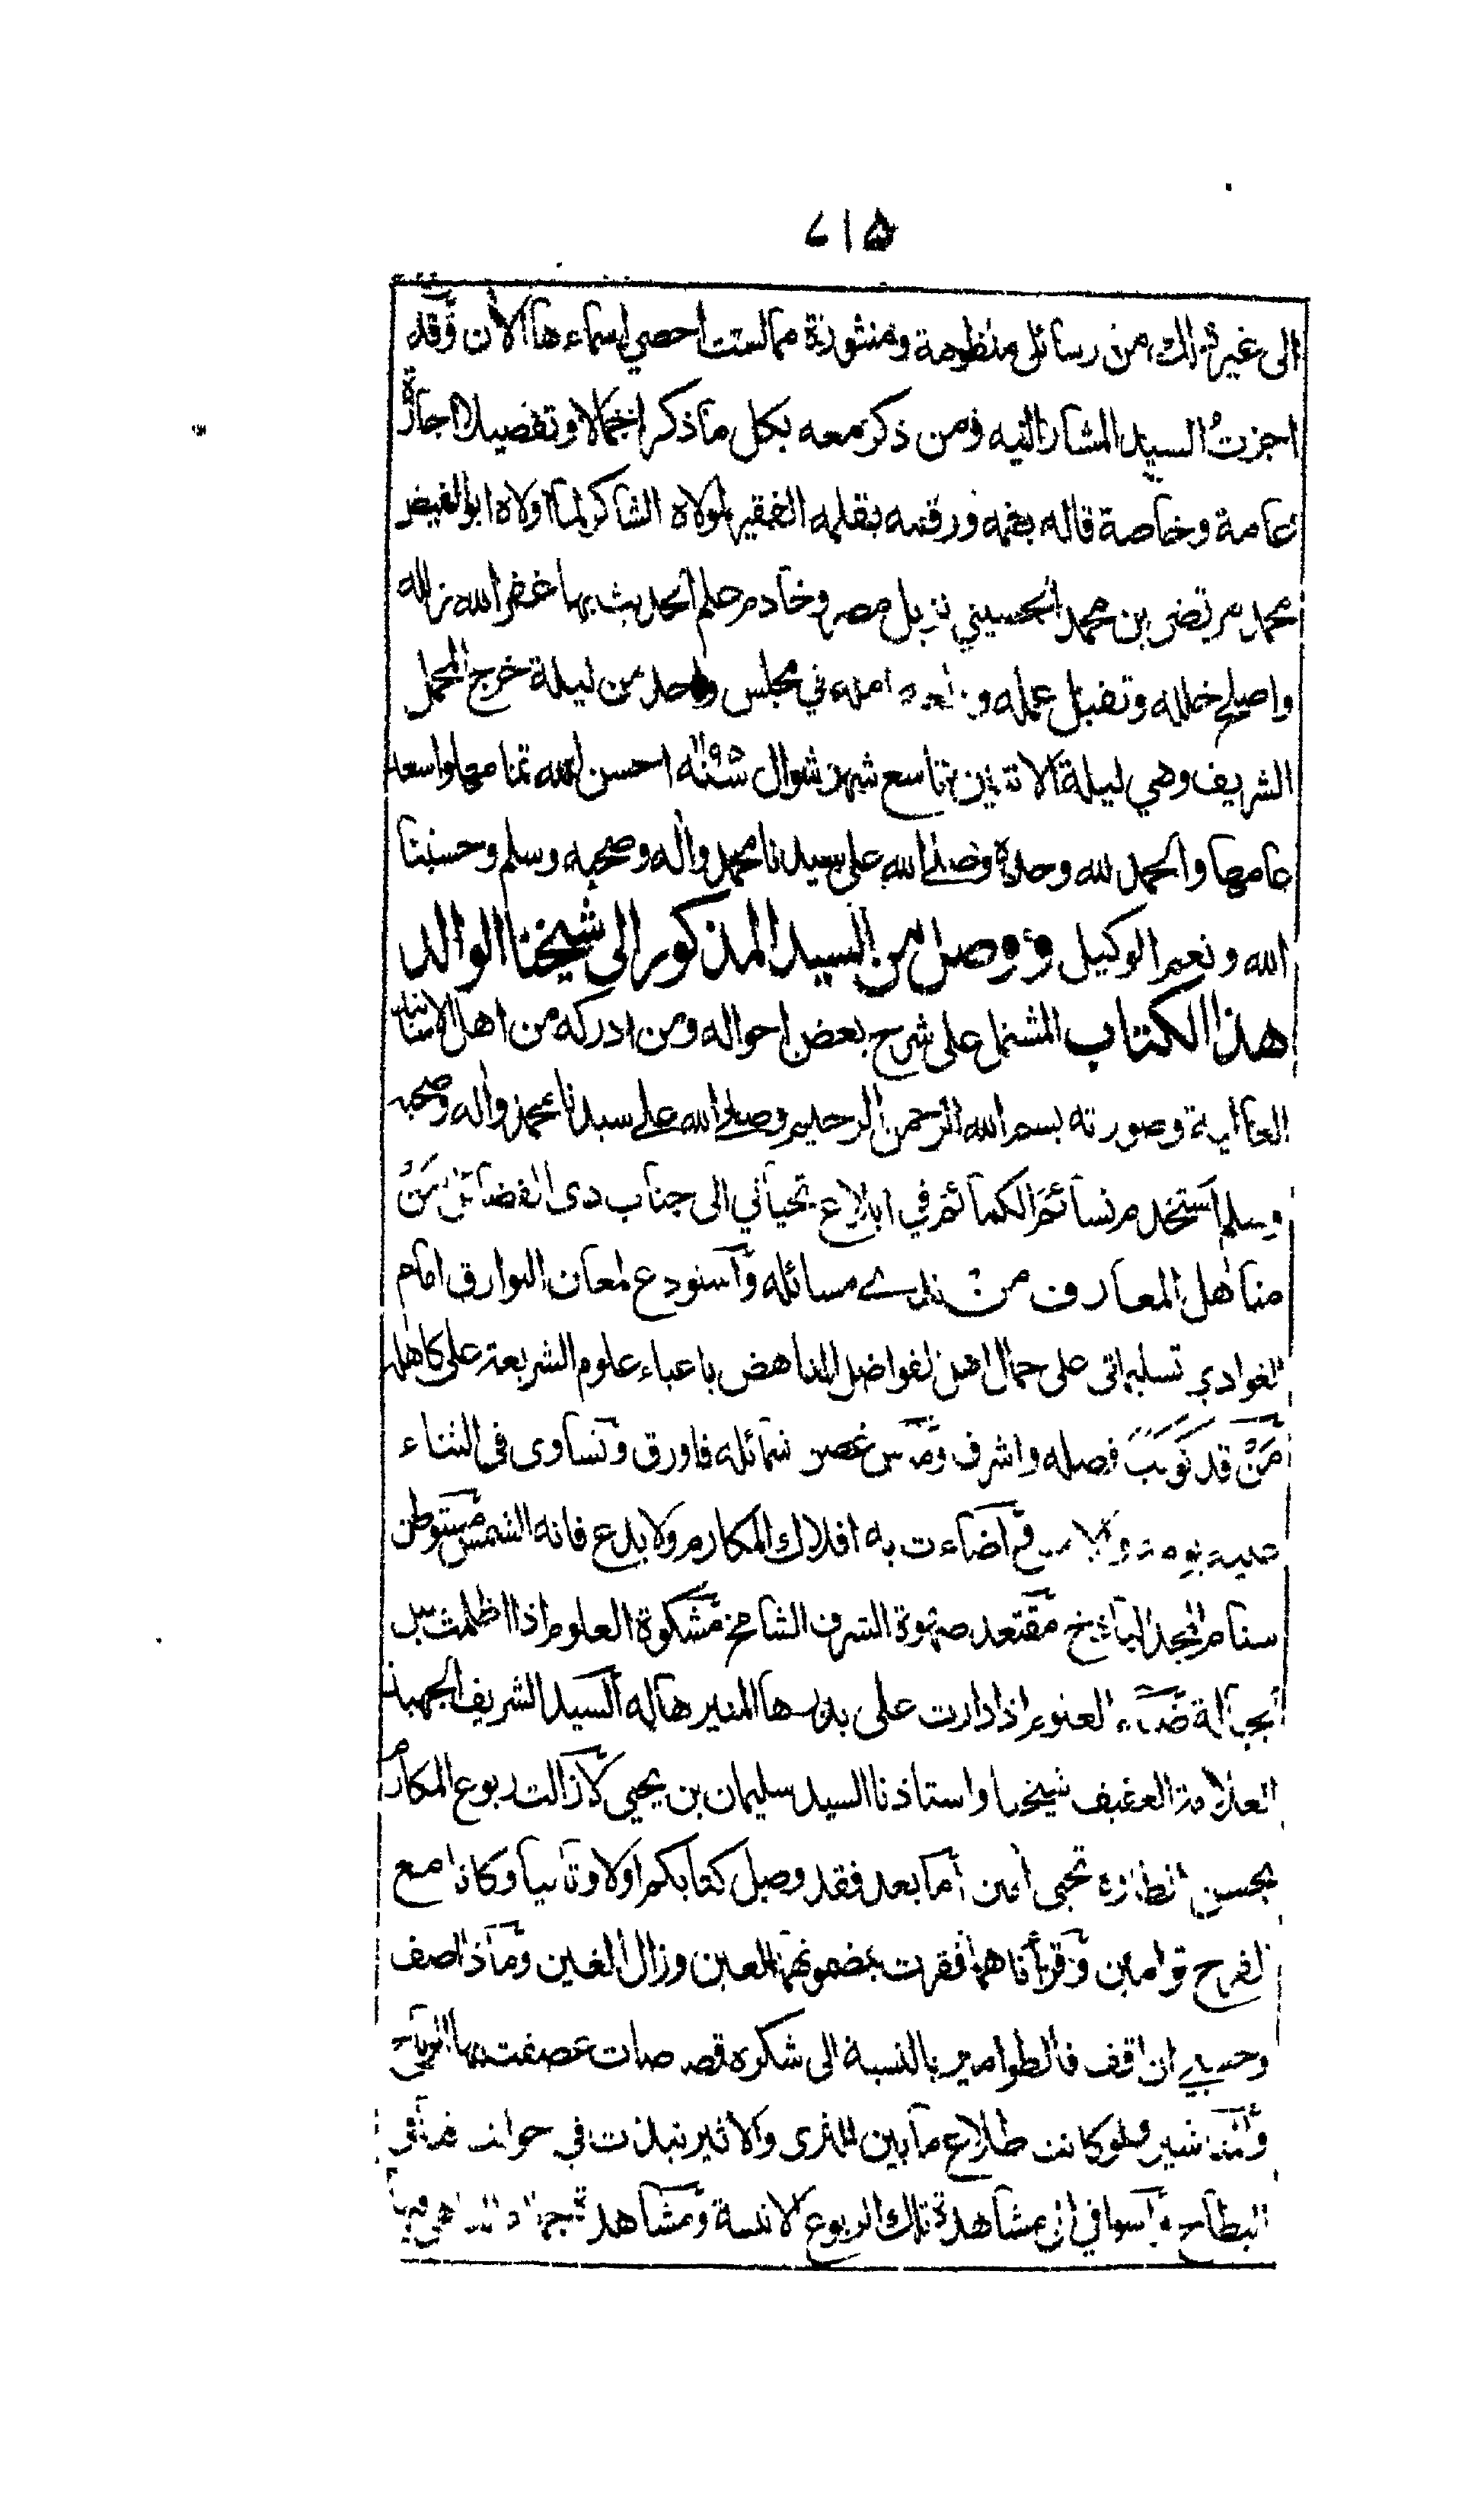 ٧١٥
الى غير ذلك من رسائل منظومة ومنثورة مما لست احصي اسماءها الآن وقد
اجزتُ السيد المشار اليه ومن ذكر معه بكل ما ذكر اجمالا وتفصيلا اجازة
عامة وخاصة قاله بفمه ورقمه بقلمه الفقير لمولاه الشاكر لما اولاه ابو الفيض
محمد مرتضى بن محمد الحسيني نزيل مصر وخادم علم الحديث بها غفر الله زلله
واصلح خلله وتقبل عمله امله في مجلس واحد من ليلة خرج المحمل
الشريف وهي ليلة الاثنين تاسع شهر شوال سنة ١١٩٥ احسن الله تمامها واسعد
عامها والحمد لله وحده وصلى الله على سيدنا محمد وآله وصحبه وسلم وحسبنا
الله ونعم الوكيل ووصل من السيد المذكور الى شيخنا الوالد
هذا الكتاب المشتمل على شرح بعض احواله ومن ادركه من اهل الاسانيد
العالية وصورته بسم الله الرحمن الرحيم وصلى الله على سيدنا محمد وآله وصحبه
وسلم استخدم نسائم الكمائم في ابلاغ تحياتي الى جناب ذى الفضائل مَن
مناهل المعارف من مسائله وآستودع لمعان البوارق امام
الغوادي تسليماتى على جمال اهل الفواضل الناهض باعباء علوم الشريعة على كاهله
مَنْ قد فضله واشرف غصن شمائله فاورق وتساوى فى الثناء
اضاءت به افلاك المكارم ولا بدع فانه الشمس مستوطن
سنام المجد الباذخ مقتعد صهوة الشرف الشامخ مشكوة العلوم اذا اظلمت
العلوم اذا دارت على بدرها المنير هاله السيد الشريف الجهبذ
العلامة الغطريف شيخنا واستاذنا السيد سليمان بن يحيى لا زالت ربوع المكارم
بحسن انظاره تحيى آمين أما بعد فقد وصل كتابكم اولا وثانيا وكانا مع
الفرح توامين وقرأناهما فقرت بمضمونهما العين وزال الغين وماذا اصف
وحسبي ان اقف فالطوامير بالنسبة الى شكره عصفت بها الرياح
ولو كانت طلاع ما بين الثرى والاثير نبذت في
البطاح مشاهدة تلك الربوع الانسة ومشاهد